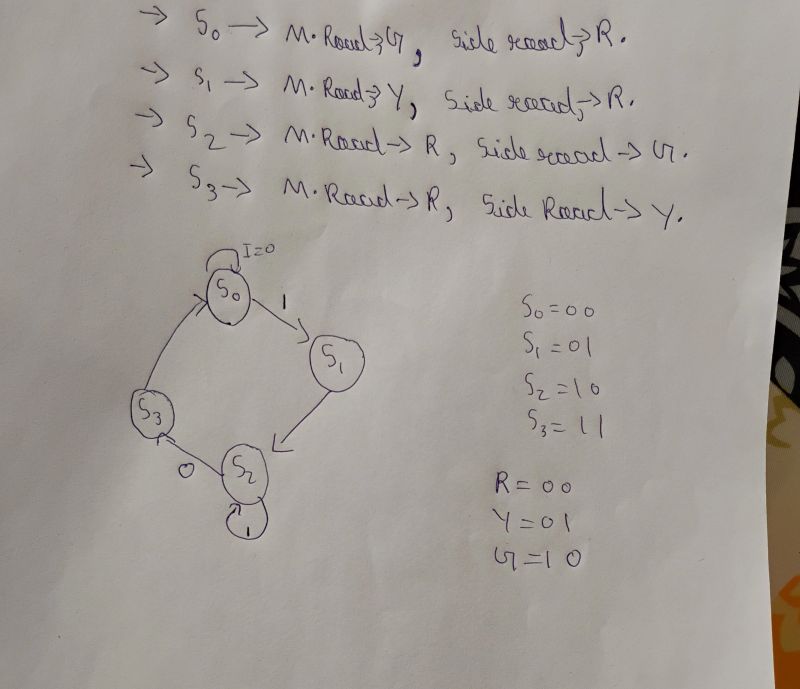 → S₀ → M. Road → G, Side road → R.
→ S₁ → M. Road → Y, Side road, → R.
→ S₂ → M. Road → R, Side road → G.
→ S₃ → M. Road → R, Side Road → Y.
I=0
S₀
1
S₁
S₃
S₂
0
1
S₀ = 00
S₁ = 01
S₂ = 10
S₃ = 11
R = 00
Y = 01
G = 10